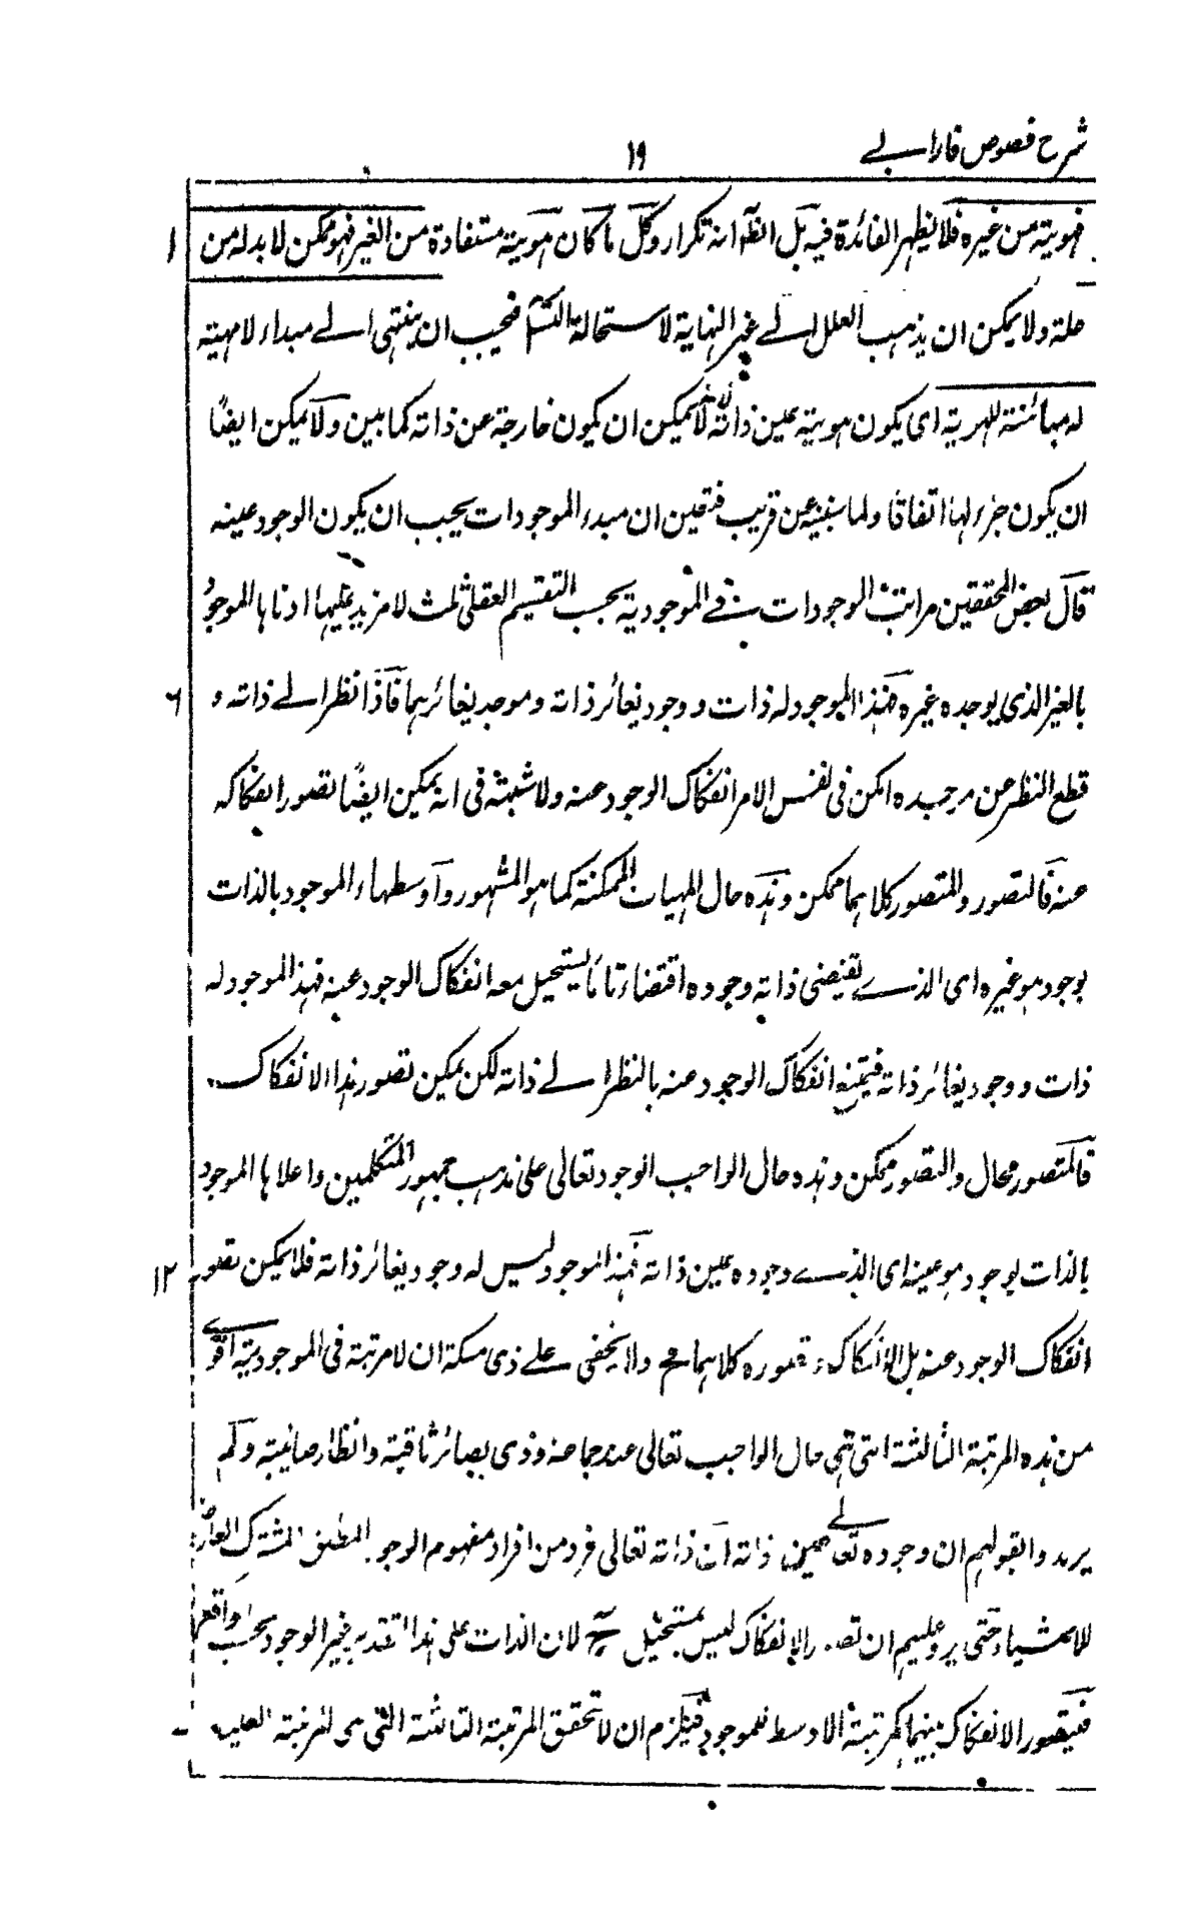 شرح فصوص فارابی
۱۹
فهویته من غیره فلا یظهر الفائدة فیه بل الظاٰ انه تکرار وکل ما کان هویته مستفادة من الغیر فهو ممکن لا بد له من
۱
علة ولا یمکن ان یذهب العلل الے غیر النهایة لاستحالة التسٓ فیجب ان ینتهی الے مبداء لا مهیة
له مبائنة للهویة ای یکون هویته عین ذاته لا یمکن ان یکون خارجة عن ذاته کما بین ولا یمکن ایضًا
ان یکون جزء لها اتفاقًا ولما سنبینه عن قریب فتعین ان مبدء الموجودات یجب ان یکون الوجود عینه
قال بعض المحققین مراتب الوجودات فے الموجودیة بحسب التقسیم العقلی ثلث لا مزید علیها ادناها الموجود
بالغیر الذی یوجده غیره فهذا الموجود له ذات و وجود یغائر ذاته وموجد یغائرهما فاذا نظر الے ذاته و
۶
قطع النظر عن موجده امکن فی نفس الامر انفکاک الوجود عنه ولا شبهة فی انه یمکن ایضًا تصور انفکاکه
عنه فالتصور والمتصور کلاهما ممکن وهذه حال المهیات الممکنة کما هو المشهور واوسطها الموجود بالذات
بوجود هو غیره ای الذے یقتضی ذاته وجوده اقتضاء تامًا یستحیل معه انفکاک الوجود عنه فهذا الموجود له
ذات و وجود یغائر ذاته فیمتنع انفکاک الوجود عنه بالنظر الے ذاته لکن یمکن تصور هذا الانفکاک
فالمتصور محال والتصور ممکن وهذه حال الواجب الوجود تعالی علی مذهب جمهور المتکلمین واعلاها الموجود
بالذات بوجود هو عینه ای الذے وجوده عین ذاته فهذا الموجود لیس له وجود یغائر ذاته فلا یمکن تصور
۱۲
انفکاک الوجود عنه بل الانفکاک و تصوره کلاهما مح ولا یخفی علے ذی مسکة ان لا مرتبة فی الموجودیة اقوے
من هذه المرتبة الثالثة التی هی حال الواجب تعالی عند جماعة ذوی بصائر ثاقبة وانظار صائبة ولم
یریدوا بقولهم ان وجوده تعالے عین ذاته ان ذاته تعالی فرد من افراد مفهوم الوجود المطلق المشترک العارض
للاشیاء حتی یرد علیهم ان تصور الانفکاک لیس بمستحیل ح لان الذات علی هذا التقدیر غیر الوجود بحسب الواقع
فیتصور الانفکاک بینهما کمرتبة الاوسط للموجود فیلزم ان لا تحقق المرتبة الثالثة التی هی المرتبة العلیا